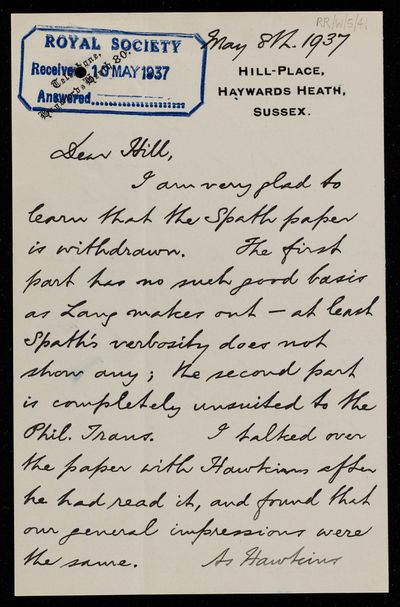 RR/W/5/41
May 8th. 1937
ROYAL SOCIETY
Received 10 MAY 1937
Answered
Telephone,
Haywards Heath, 80.
HILL-PLACE,
HAYWARDS HEATH,
SUSSEX.
Dear Hill,
I am very glad to
learn that the Spath paper
is withdrawn. The first
part has no such good basis
as Lang makes out – at least
Spath's verbosity does not
show any; the second part
is completely unsuited to the
Phil. Trans. I talked over
the paper with Hawkins after
he had read it, and found that
our general impressions were
the same. As Hawkins